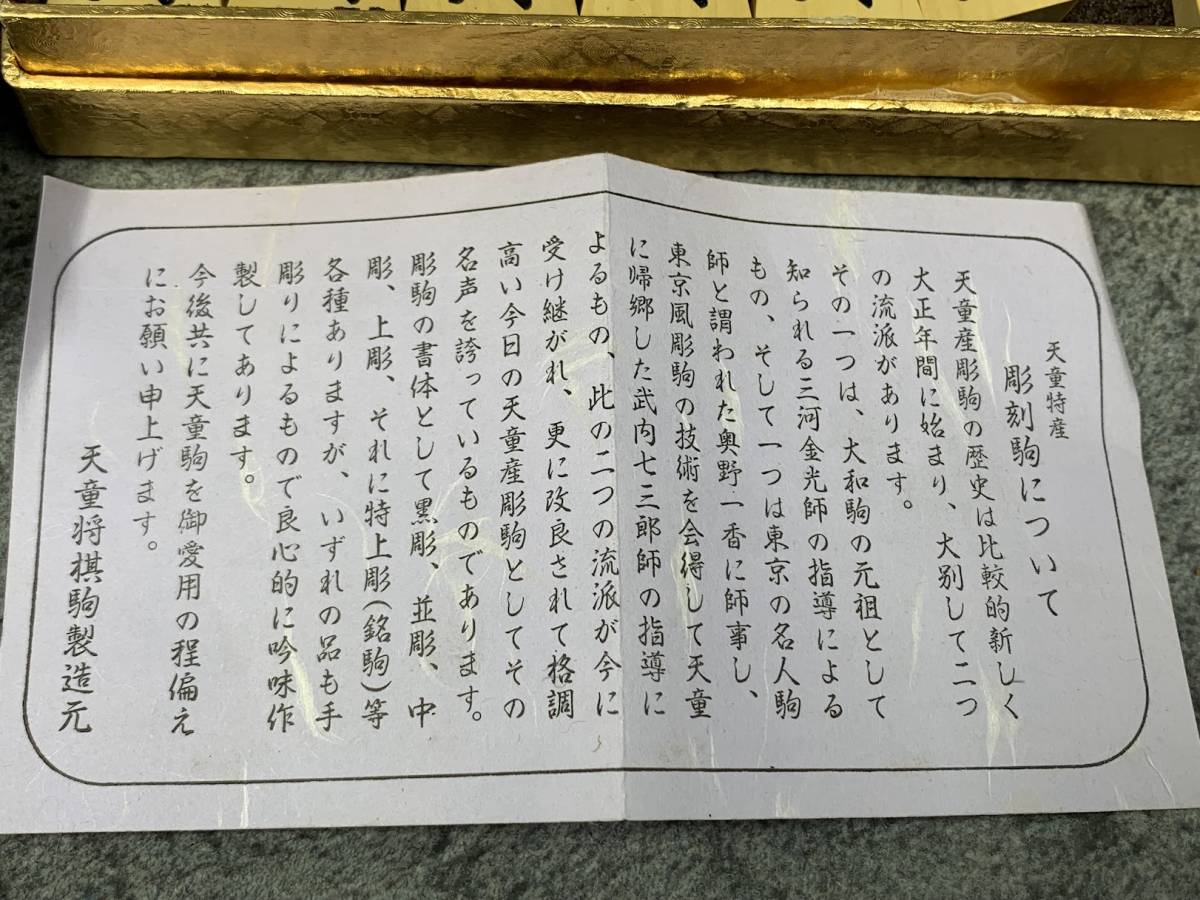 天童特産
彫刻駒について
天童産彫駒の歴史は比較的新しく
大正年間に始まり、大別して二つ
の流派があります。
その一つは、大和駒の元祖として
知られる三河金光師の指導による
もの、そして一つは東京の名人駒
師と謂われた奥野一香に師事し、
東京風彫駒の技術を会得して天童
に帰郷した武内七三郎師の指導に
よるもの、此の二つの流派が今に
受け継がれ、更に改良されて格調
高い今日の天童産彫駒としてその
名声を誇っているものであります。
彫駒の書体として黒彫、並彫、中
彫、上彫、それに特上彫(銘駒)等
各種ありますが、いずれの品も手
彫りによるもので良心的に吟味作
製してあります。
今後共に天童駒を御愛用の程偏え
にお願い申上げます。
天童将棋駒製造元